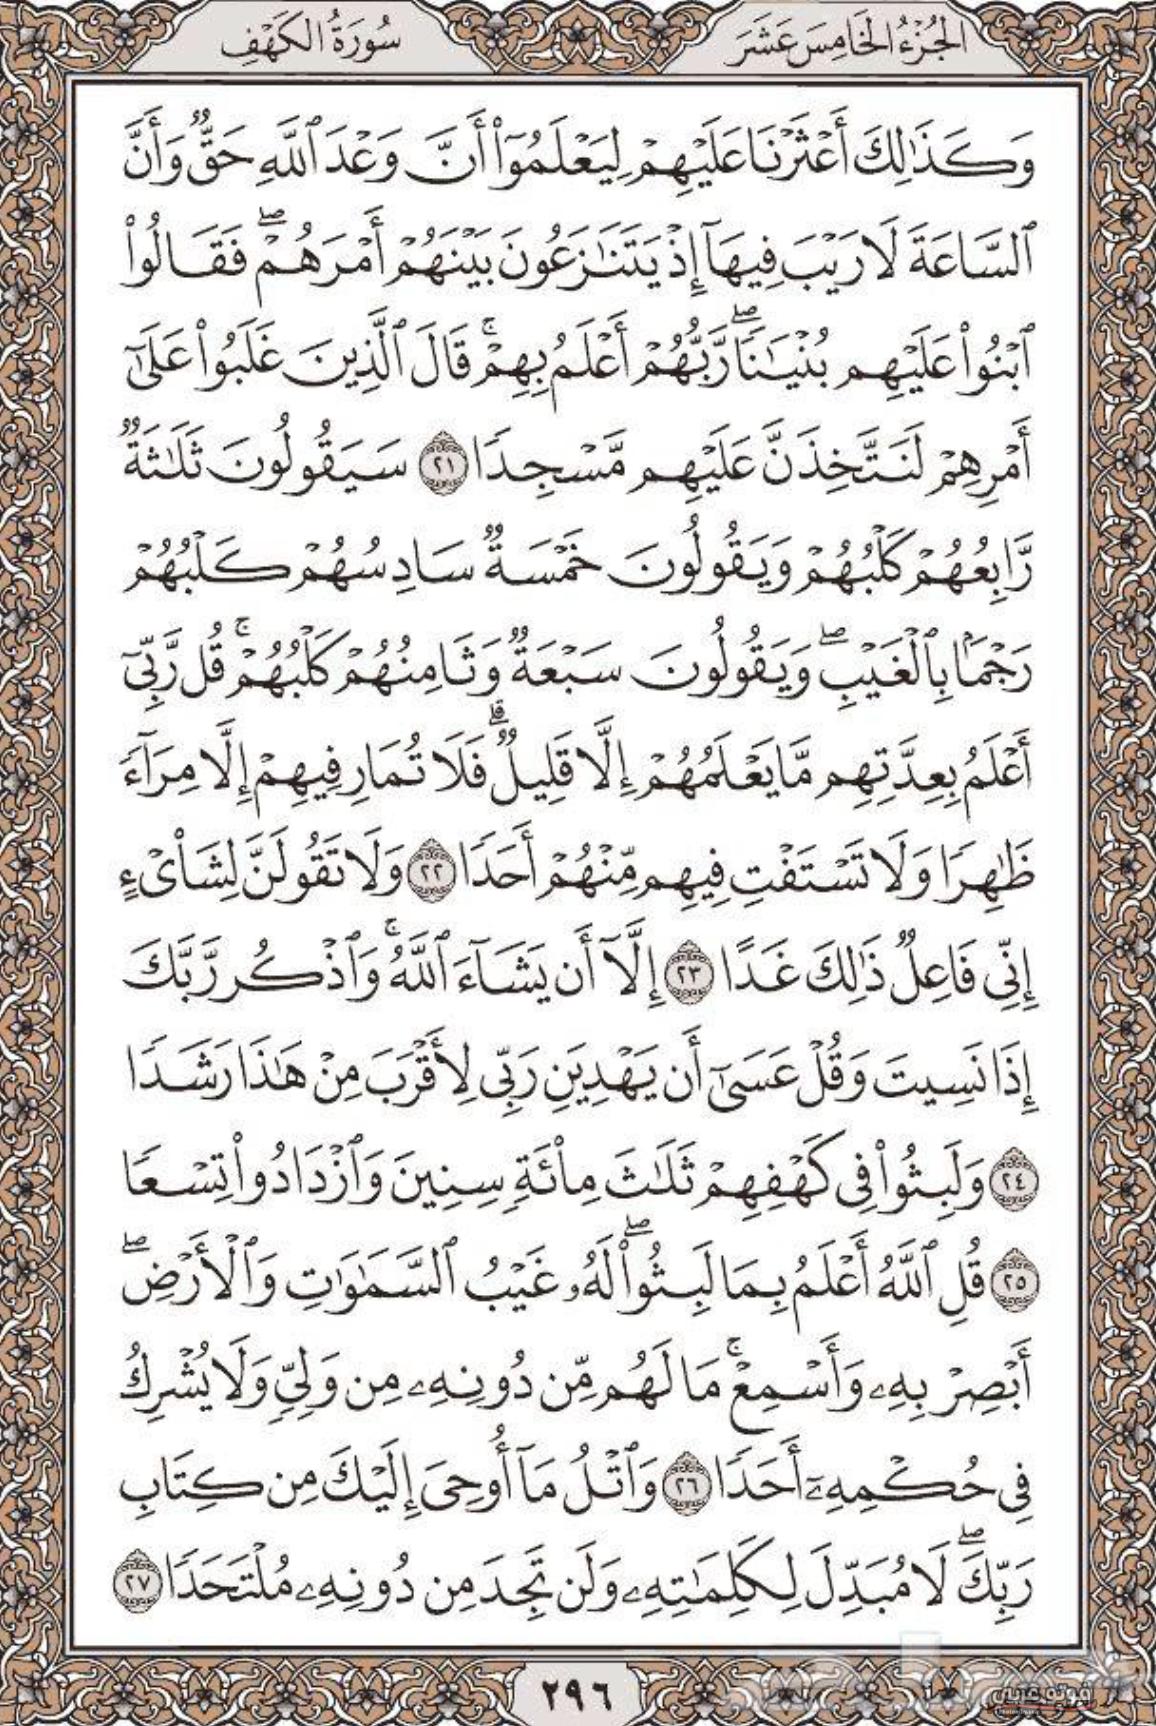 الجُزْءُ الخَامِسَ عَشَرَ
سُورَةُ الكَهْفِ
وَكَذَٰلِكَ أَعْثَرْنَا عَلَيْهِمْ لِيَعْلَمُوٓا۟ أَنَّ وَعْدَ ٱللَّهِ حَقٌّ وَأَنَّ
ٱلسَّاعَةَ لَا رَيْبَ فِيهَآ إِذْ يَتَنَٰزَعُونَ بَيْنَهُمْ أَمْرَهُمْ ۖ فَقَالُوا۟
ٱبْنُوا۟ عَلَيْهِم بُنْيَٰنًا ۖ رَّبُّهُمْ أَعْلَمُ بِهِمْ ۚ قَالَ ٱلَّذِينَ غَلَبُوا۟ عَلَىٰٓ
أَمْرِهِمْ لَنَتَّخِذَنَّ عَلَيْهِم مَّسْجِدًا ٢١ سَيَقُولُونَ ثَلَٰثَةٌ
رَّابِعُهُمْ كَلْبُهُمْ وَيَقُولُونَ خَمْسَةٌ سَادِسُهُمْ كَلْبُهُمْ
رَجْمًۢا بِٱلْغَيْبِ ۖ وَيَقُولُونَ سَبْعَةٌ وَثَامِنُهُمْ كَلْبُهُمْ ۚ قُل رَّبِّىٓ
أَعْلَمُ بِعِدَّتِهِم مَّا يَعْلَمُهُمْ إِلَّا قَلِيلٌ ۗ فَلَا تُمَارِ فِيهِمْ إِلَّا مِرَآءً
ظَٰهِرًا وَلَا تَسْتَفْتِ فِيهِم مِّنْهُمْ أَحَدًا ٢٢ وَلَا تَقُولَنَّ لِشَا۟ىْءٍ
إِنِّى فَاعِلٌ ذَٰلِكَ غَدًا ٢٣ إِلَّآ أَن يَشَآءَ ٱللَّهُ ۚ وَٱذْكُر رَّبَّكَ
إِذَا نَسِيتَ وَقُلْ عَسَىٰٓ أَن يَهْدِيَنِ رَبِّى لِأَقْرَبَ مِنْ هَٰذَا رَشَدًا
٢٤ وَلَبِثُوا۟ فِى كَهْفِهِمْ ثَلَٰثَ مِا۟ئَةٍ سِنِينَ وَٱزْدَادُوا۟ تِسْعًا
٢٥ قُلِ ٱللَّهُ أَعْلَمُ بِمَا لَبِثُوا۟ ۖ لَهُۥ غَيْبُ ٱلسَّمَٰوَٰتِ وَٱلْأَرْضِ ۖ
أَبْصِرْ بِهِۦ وَأَسْمِعْ ۚ مَا لَهُم مِّن دُونِهِۦ مِن وَلِىٍّ وَلَا يُشْرِكُ
فِى حُكْمِهِۦٓ أَحَدًا ٢٦ وَٱتْلُ مَآ أُوحِىَ إِلَيْكَ مِن كِتَابِ
رَبِّكَ ۖ لَا مُبَدِّلَ لِكَلِمَٰتِهِۦ وَلَن تَجِدَ مِن دُونِهِۦ مُلْتَحَدًا ٢٧
٢٩٦
فوتو عربي